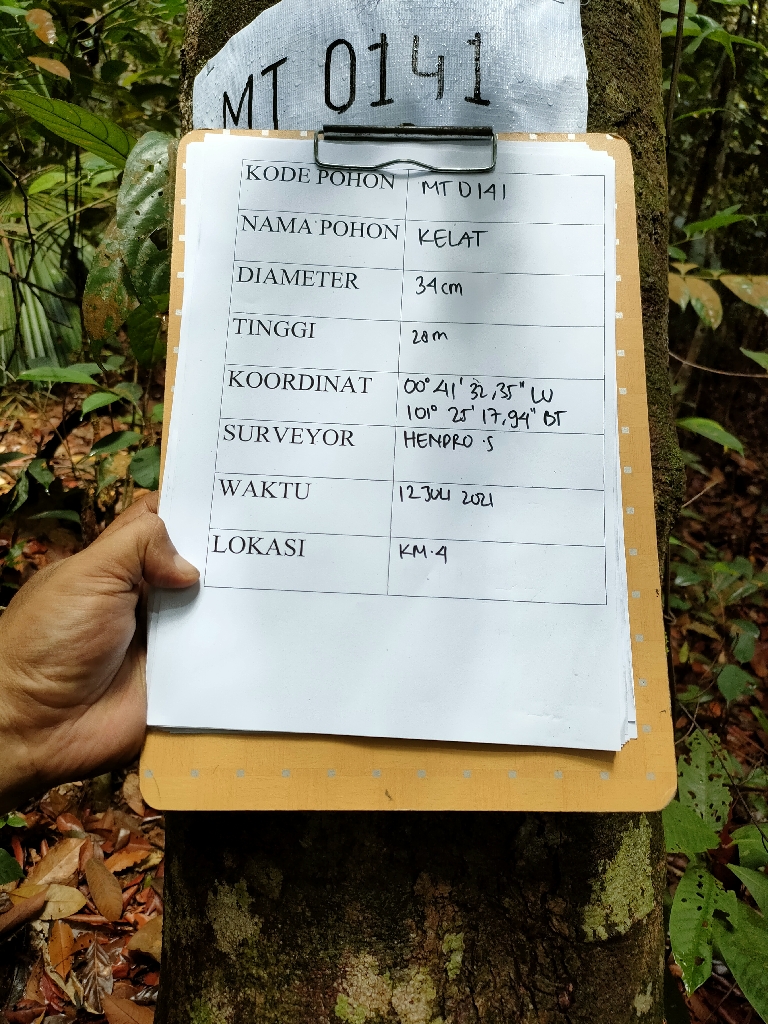 MT 0141
KODE POHON MT 0141
NAMA POHON KELAT
DIAMETER 34cm
TINGGI 28m
KOORDINAT 00° 41' 32,35" LU
101° 25' 17,94" BT
SURVEYOR HENDRO .S
WAKTU 12 JULI 2021
LOKASI KM.4